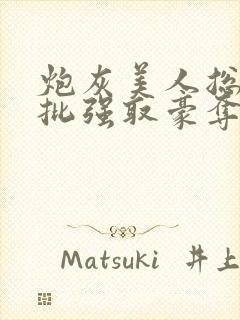 炮灰美人总
批强取豪夺
Matsuki 井上